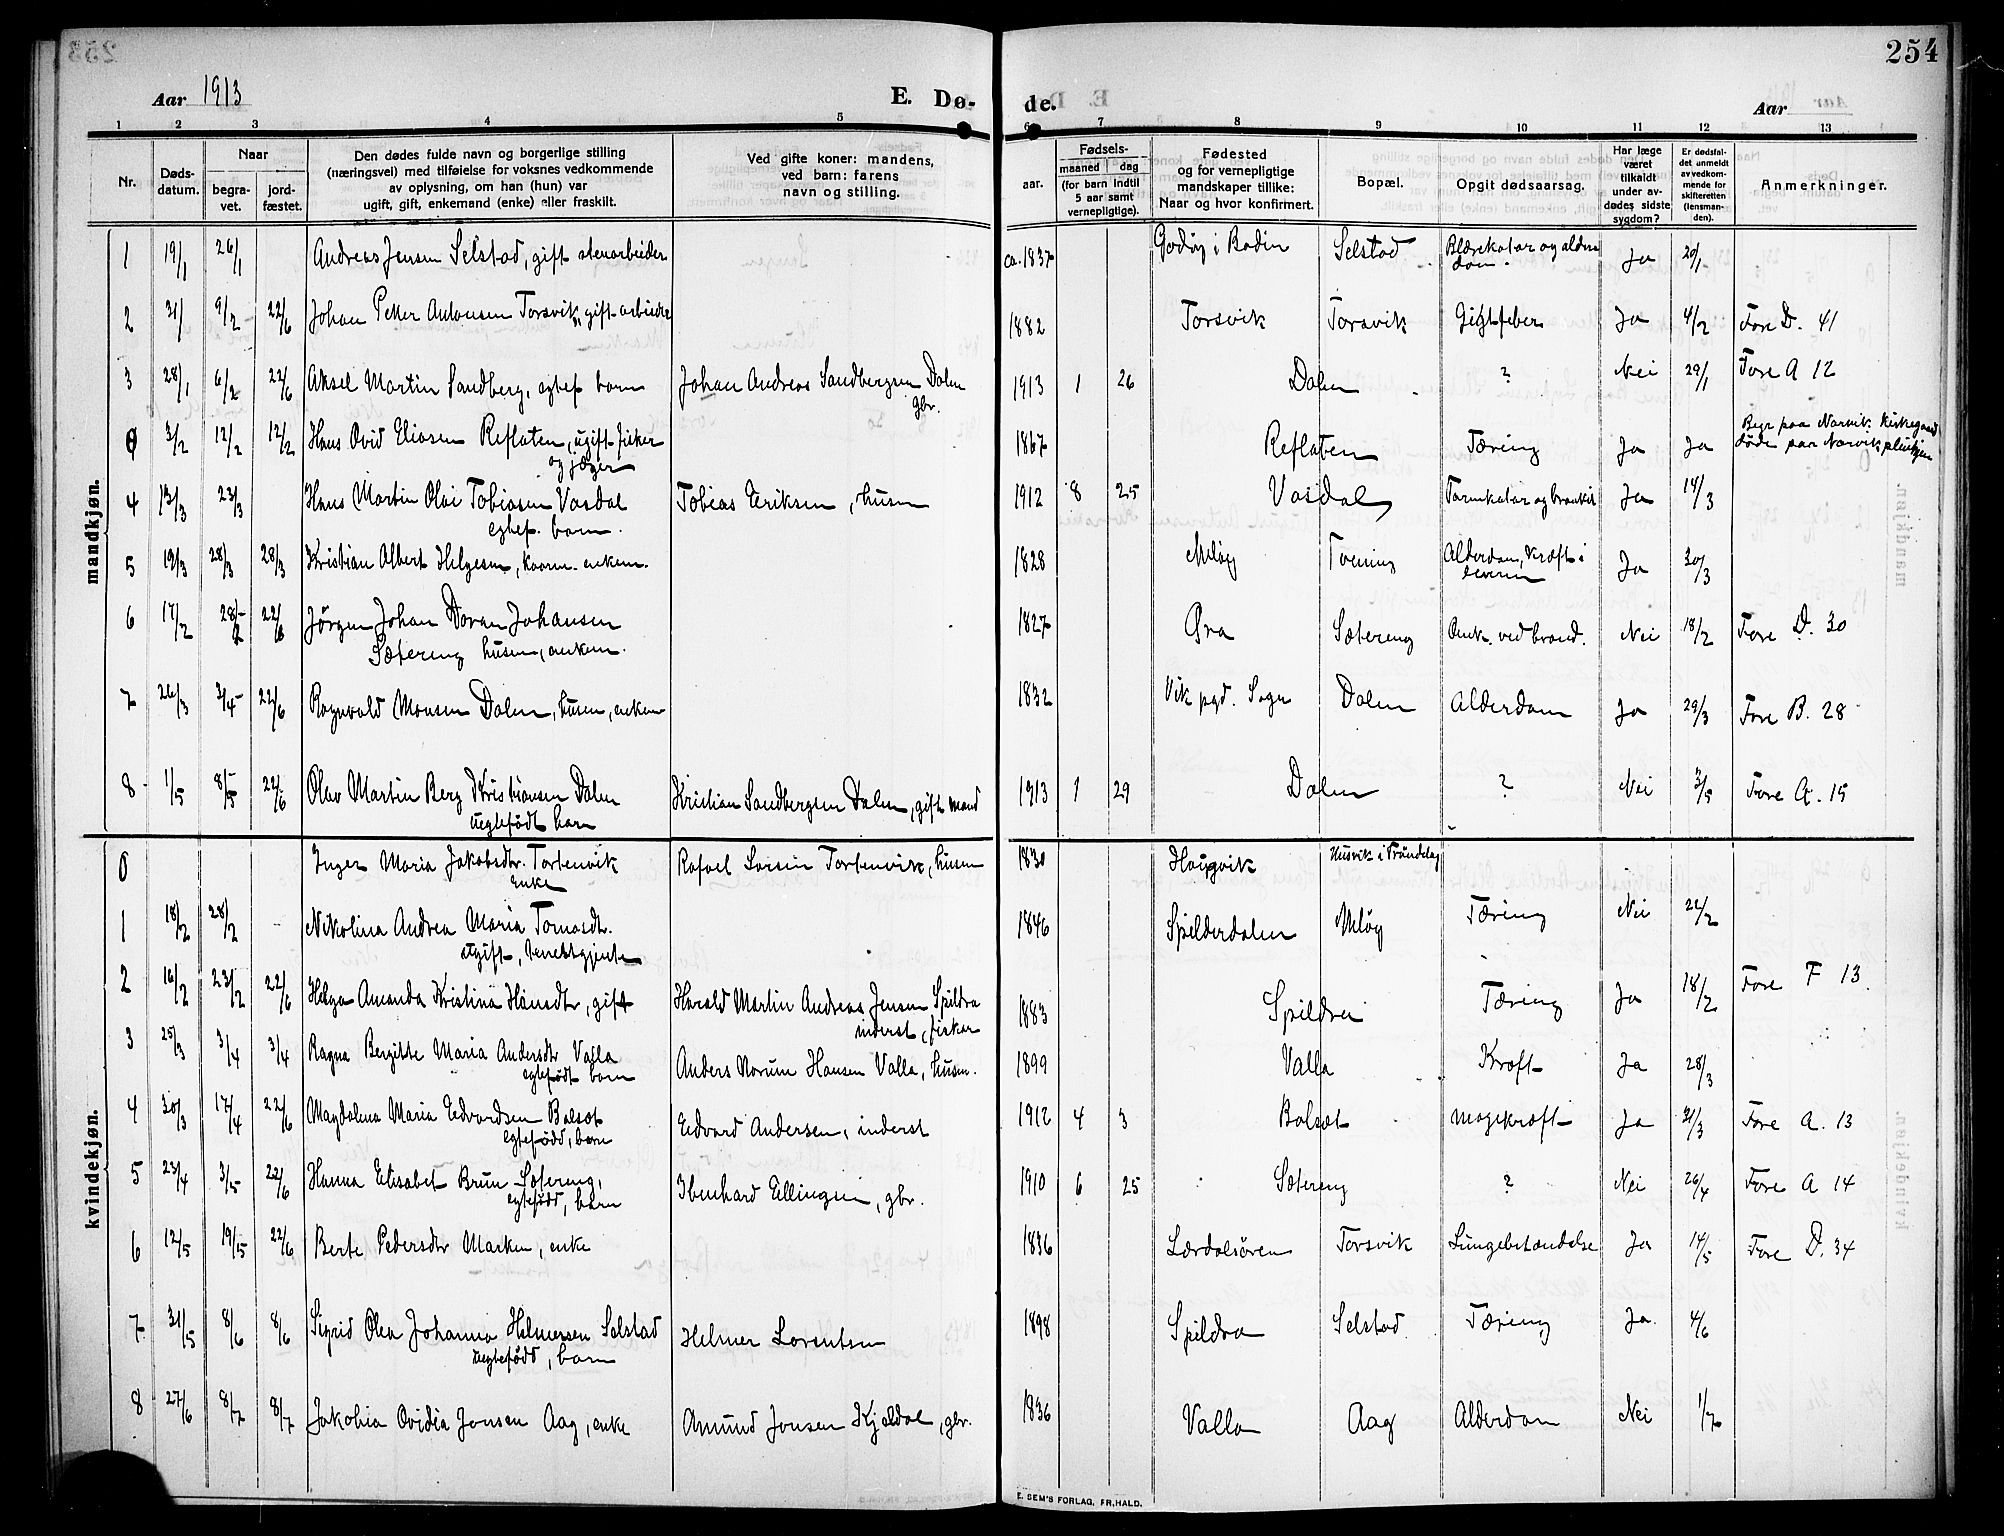 254
Aar 1913
E. Dø-
de.
Aar
1 2 3 4 5
6 7 8 9 10 11 12 13
Nr.
Døds-
datum.
Naar
begra-
vet.
jord-
fæstet.
Den dødes fulde navn og borgerlige stilling
(næringsvei) med tilføielse for voksnes vedkommende
av oplysning, om han (hun) var
ugift, gift, enkemand (enke) eller fraskilt.
Ved gifte koner: mandens,
ved barn: farens
navn og stilling.
aar.
Fødsels-
maaned dag
(for barn indtil
5 aar samt
vernepligtige).
Fødested
og for vernepligtige
mandskaper tillike:
Naar og hvor konfirmert.
Bopæl.
Opgit dødsaarsag.
Har læge
været
tilkaldt
under av-
dødes sidste
sygdom?
Er dødsfal-
det anmeldt
av vedkom-
mende for
skifteretten
(lensman-
den).
Anmerkninger.
mandkjøn.
1 19/1 26/1 Andreas Jensen Selstad, gift stenarbeider ca. 1837 Godøy i Bodin Selstad Blærekatar og alders Ja 20/1
dom.
2 31/1 9/2 22/6 Johan Petter Antonsen Torsvik, gift arbeider 1882 Torsvik Torsvik Gigtfeber Ja 4/2 Fore D. 41
3 28/1 6/2 22/6 Aksel Martin Sandberg, egtef barn Johan Andreas Sandbergsen Dalen 1913 1 26 Dalen ? Nei 29/1 Fore A 12
gbr.
0 3/2 12/2 12/2 Hans Ovid Eliasen Reflaten, ugift fisker 1867 Reflaten Tæring Ja Ja Begr paa Narvik kirkegaard
og jæger døde paa Narvik
4 13/3 23/3 Hans Martin Olai Tobiasen Vasdal Tobias Eriksen, husm 1912 8 25 Vasdal Tarmkatar og bronkit Ja 14/3
egtef. barn.
5 19/3 28/3 28/3 Kristian Albert Helgesen, kaarm. enkem. 1828 Meløy Torening Alderdom, kræft i Ja 20/3
leveren
6 17/2 28/2 22/6 Jørgen Johan Doran Johansen 1827 Øra Sætereng Omk. ved brand. Nei 18/2 Fore D. 30
Sætereng husm, enkem.
7 26/3 3/4 22/6 Ragnvald Monsen Dalen, husm, enkem 1832 Vik pgd. Sogn Dalen Alderdom Ja 29/3 Fore B. 28
8 1/5 8/5 22/6 Olav Martin Berg Kristiansen Dalen Kristian Sandbergsen Dalen, gift mand 1913 1 29 Dalen ? Nei 3/5 Fore A. 15
uegtefødt barn
kvindekjøn.
0 Inger Maria Jakobsdtr. Tortenvik Rafael Larsen Tortenvik, husm 1830 Haugvik Husvik i Trøndelag
enke
1 18/2 28/2 Nikolina Andrea Maria Tomasdtr. 1846 Spilderdalen Meløy Tæring Nei 22/2
ugift,
2 16/2 23/2 22/6 Helga Amanda Kristina Hansdtr, gift Harald Martin Andreas Jensen Spildra 1883 Spildra Tæring Ja 18/2 Fore F 13.
inderst, fisker
3 25/3 3/4 3/4 Ragna Bergitte Maria Andersdtr Valla Anders Norum Hansen Valla, husm. 1899 Valla Kræft Ja 28/3
egtefødt barn
4 30/3 17/4 22/6 Magdalena Maria Edvardsen Bolsøt Edvard Andersen, inderst 1912 4 3 Bolsøt Magekræft Ja 31/3 Fore A. 13
egtefødd, barn
5 23/4 3/5 22/6 Hanna Elisabet Brun Sætereng, Ibenhard Ellingsen, gbr. 1910 6 25 Sætereng ? Nei 26/4 Fore A 14
egtefødd, barn
6 12/5 19/5 22/6 Berte Pedersdtr Marken, enke 1836 Lærdalsøren Torsvik Lungebetændelse Ja 14/5 Fore D. 34
7 31/5 8/6 8/6 Sigrid Olea Johanna Helmersen Selstad Helmer Lorentsen 1898 Spildra Selstad Tæring Ja. 4/6
uegtefødd, barn
8 27/6 8/7 8/7 Jakobia Ovidia Jonsen Aag, enke Amund Jonsen Kjeldal, gbr. 1836 Valla Aag Alderdom Nei 1/7
E. SEM'S FORLAG, FR.HALD.